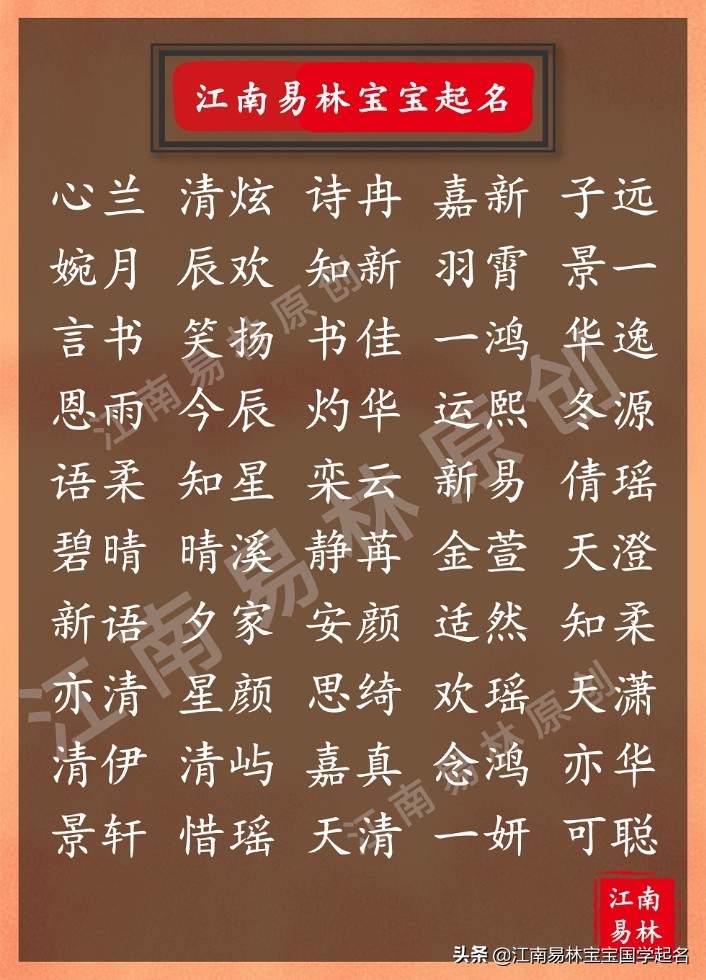 江南易林宝宝起名
心兰 清炫 诗冉 嘉新 子远
婉月 辰欢 知新 羽霄 景一
言书 笑扬 书佳 一鸿 华逸
恩雨 今辰 灼华 运熙 冬源
语柔 知星 栾云 新易 倩瑶
碧晴 晴溪 静苒 金萱 天澄
新语 夕家 安颜 适然 知柔
亦清 星颜 思绮 欢瑶 天潇
清伊 清屿 嘉真 念鸿 亦华
景轩 惜瑶 天清 一妍 可聪
江南易林原创
江南易林原创
江南易林原创
江南
易林
头条 @江南易林宝宝国学起名